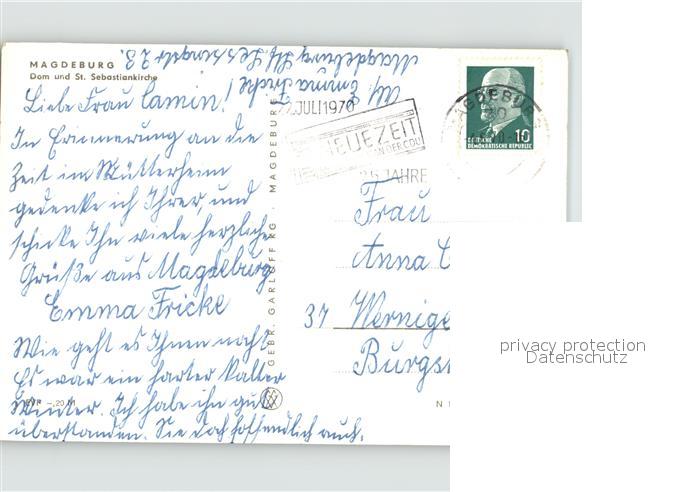 MAGDEBURG
Dom und St. Sebastiankirche
Liebe Frau Camin!
In Erinnerung an die
Zeit im Mütterheim
gedenke ich Ihrer, und
schicke Ihn viele herzliche
Grüße aus Magdeburg
Emma Fricke
Wie geht es Ihnen noch?
Es war ein harter kalter
Winter. Ich habe ihn gut
überstanden. Sie doch hoffendlich auch.
Abs. Emma Fricke!
Magdeburg
23.
GEBR. GARLOFF KG. MAGDEBURG
JULI 1970
NEUE ZEIT
DER CDU
25 JAHRE
MAGDEBURG
10
DEUTSCHE
DEMOKRATISCHE REPUBLIK
Frau
Anna C
37 Wernige
Burgst
N 1
privacy protection
Datenschutz